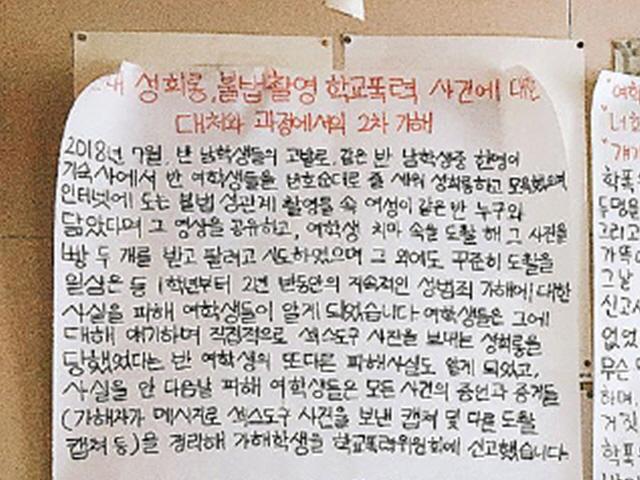 성희롱, 불법촬영 학교폭력 사건에 대한
대처와 과정에서의 2차 가해
2018년 7월, 반 남학생들의 고발로, 같은 반 남학생중 한명이
기숙사에서 반 여학생들을 번호순대로 줄 세워 성희롱하고 모욕했으며
인터넷에 도는 불법 성관계 촬영물 속 여성이 같은반 누구와
닮았다며 그 영상을 공유하고, 여학생 치마 속을 도촬 해 그 사진을
빵 두 개를 받고 팔려고 시도하였으며 그 외에도 꾸준히 도촬을
일삼은 등 1학년부터 2년 반동안의 지속적인 성범죄 가해에 대한
사실을 피해 여학생들이 알게 되었습니다 여학생들은 그에
대해 얘기하며 직접적으로 섹스도구 사진을 보내는 성희롱을
당했었다는 반 여학생의 또다른 피해사실도 알게 되었고,
사실을 안 다음날 피해 여학생들은 모든 사건의 증언과 증거들
(가해자가 메시지로 섹스도구 사진을 보낸 캡쳐 및 다른 도촬
캡쳐 등)을 정리해 가해학생을 학교폭력위원회에 신고했습니다
"여학
"너한
"개기
학폭
두명을
그리고
가똑
그날
신고
없었
무슨
하며,
거짓
학폭